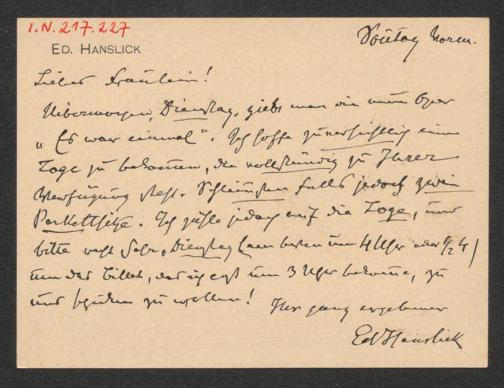 I.N. 217.227
ED. HANSLICK
Sonntag Vorm.
Liebes Fräulein!
Uebermorgen, Dienstag, giebt man die neue Oper
„Es war einmal". Ich hoffe zuversichtlich eine
Loge zu bekommen, die vollständig zu Ihrer
Verfügung steht. Schlimmsten Falls jedoch zwei
Parkettsitze. Ich zähle jedoch auf die Loge, und
bitte recht sehr, Dienstag (am besten um 4 Uhr oder ½ 4)
um das Billet, das ich erst um 3 Uhr bekomme, zu
uns schicken zu wollen!
Ihr ganz ergebener
Ed Hanslick